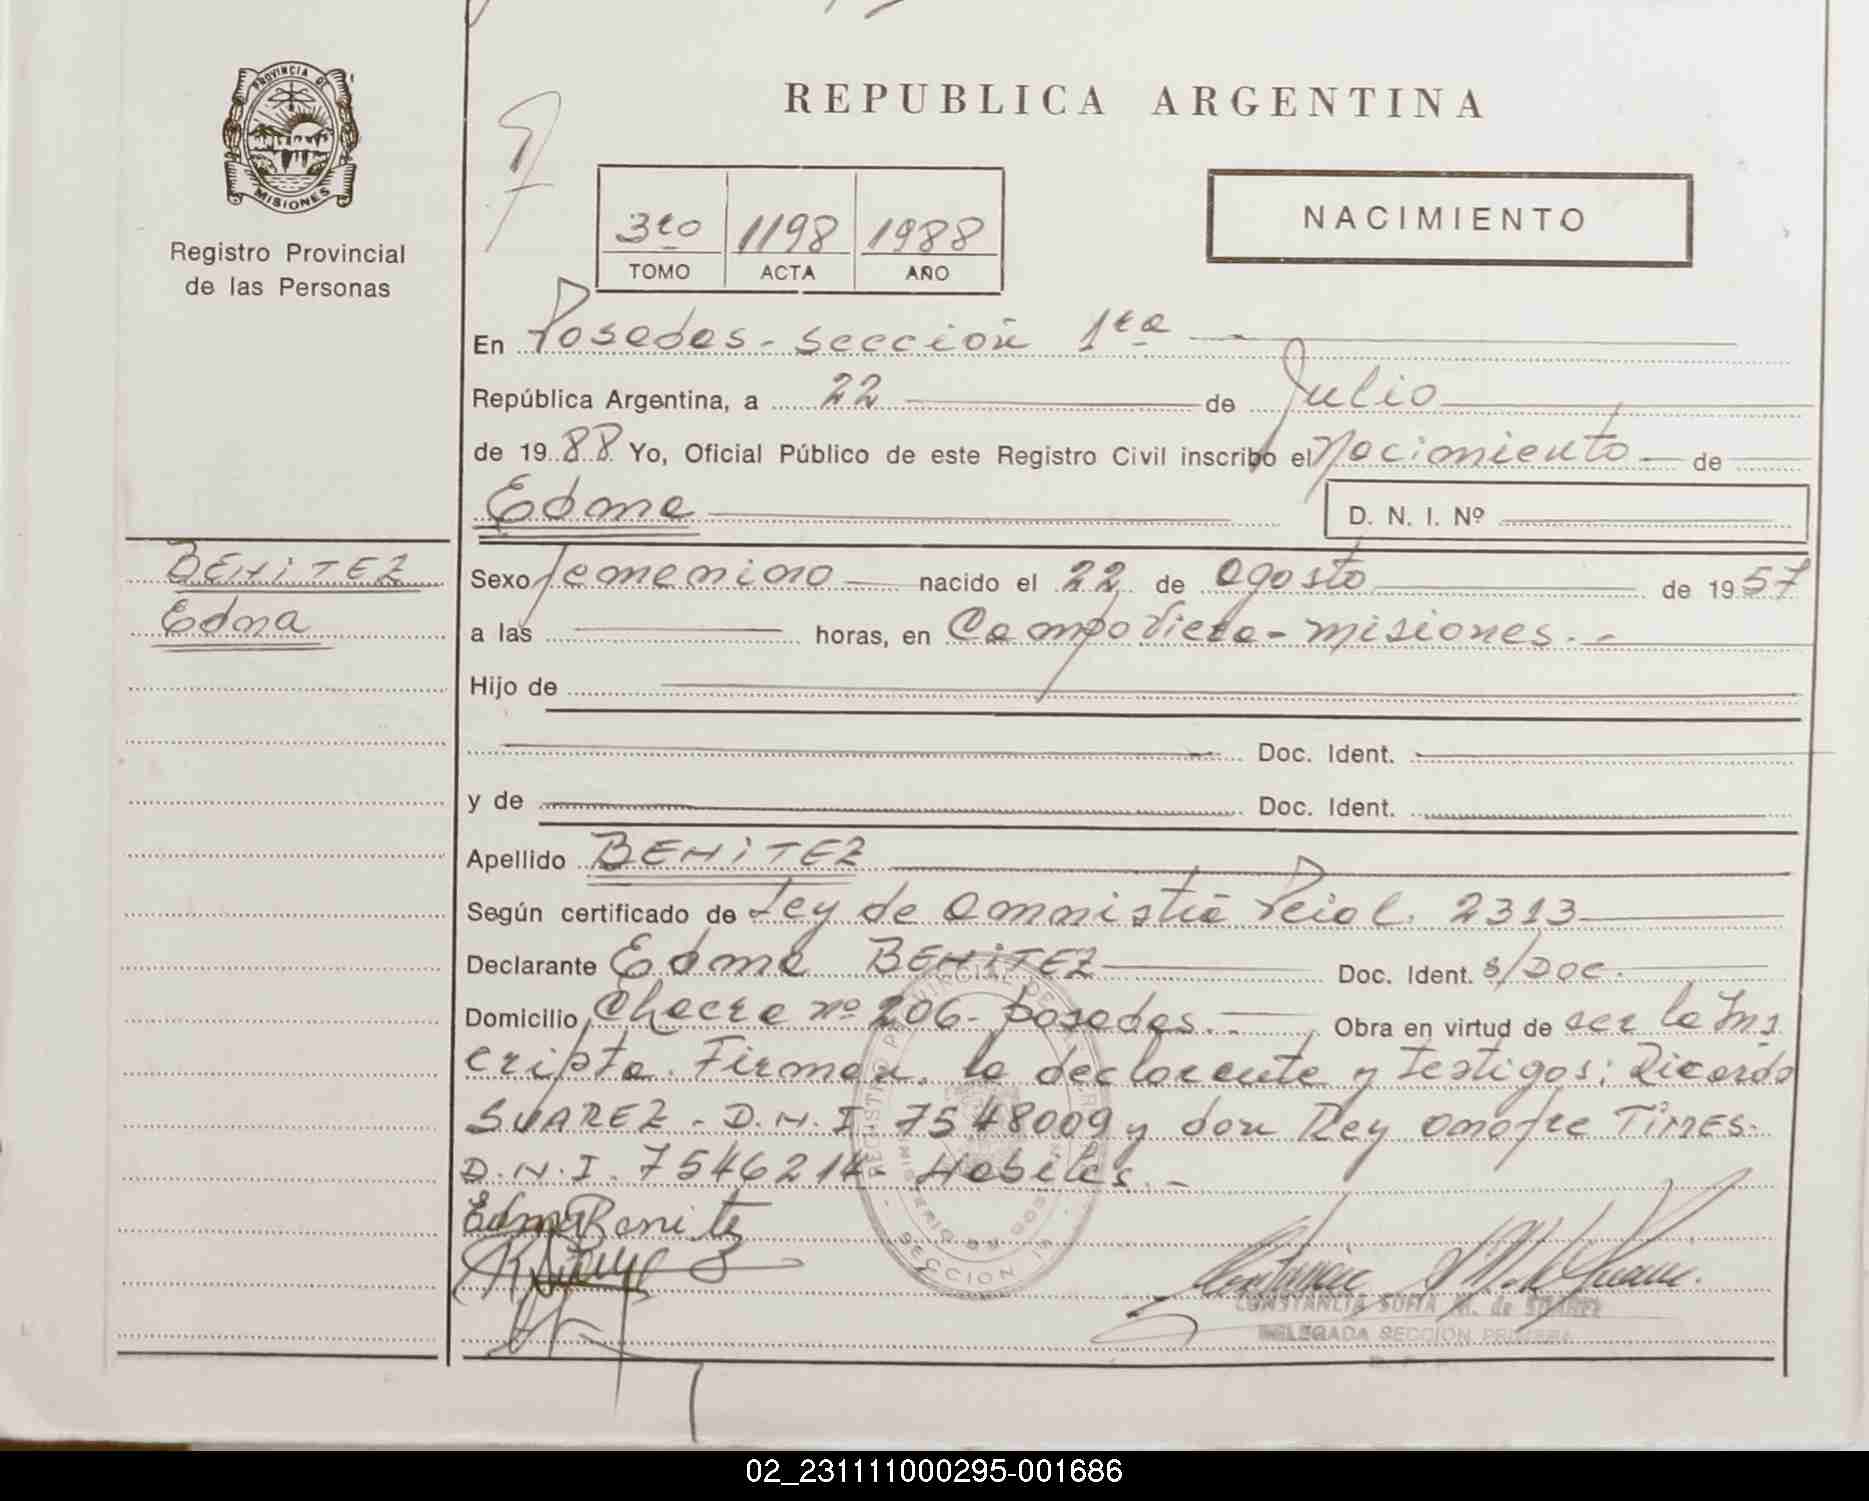 PROVINCIA DE
MISIONES
Registro Provincial
de las Personas
REPUBLICA ARGENTINA
3ro 1198 1988
TOMO ACTA AÑO
NACIMIENTO
En Posadas - sección 1ra
República Argentina, a 22 de Julio
de 1988 Yo, Oficial Público de este Registro Civil inscribo el Nacimiento de
Edma
D. N. I. Nº
BENITEZ
Edma
Sexo femenino nacido el 22 de agosto de 1957
a las horas, en Campo Viera - Misiones.-
Hijo de
Doc. Ident.
y de Doc. Ident.
Apellido BENITEZ
Según certificado de Ley de amnistía Pcial. 2313
Declarante Edma BENITEZ Doc. Ident. s/DOC.
Domicilio Chacra nº 206- Posadas.- Obra en virtud de ser la Ins
cripta. Firman. la declarante y testigos: Ricardo
SUAREZ - D.N.I 7548009 y don Rey Onofre
D.N.I. 7546214- Habiles.-
Edma Benitez
SECCION 1ª
CONSTANCIA SOFIA M. de SUAREZ
DELEGADA SECCION PRIMERA
02_231111000295-001686